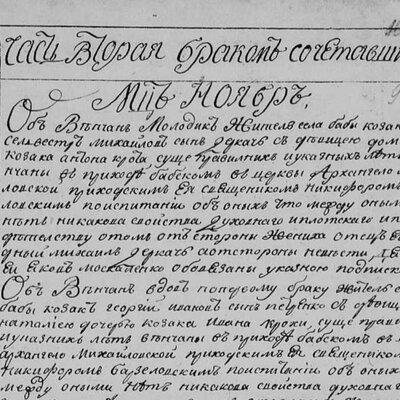 часть вторая бракомъ сочетавши
Мцъ Ноябръ,
Объ Вѣнчанъ Молодикъ Житель села бабы козак
селвестръ михайловъ сынъ деркачъ сдѣвицею дом
козака антона крота, суще правилнихъ иуказныхъ лѣтъ
нчаны вприходѣ бабскомъ вцеркви Архангело
ловской приходскимъ ея священикомъ никифором
ловскимъ поиспитании обоныхъ что между оным
нѣтъ никакова свойства духовнаго иплотскаго ип
отомъ отъ стороны жениха отецъ е
дный михаилъ деркачъ аотстороны невести
москаленко обовязаны указною подписк
Объ Вѣнчанъ вдовъ поперветому браку житель се
бабы козакъ георгій ивановъ синъ петренко сдѣвиц
наталіею дочерью козака ивана крохи, суще прави
иуказнихъ лѣтъ вѣнчаны вприходѣ бабскомъ в
архангело Михайловской приходскимъ ея священиком
никифоромъ базеловскимъ поиспитании объ оных
между оними нѣтъ никакова свойства духовнаго